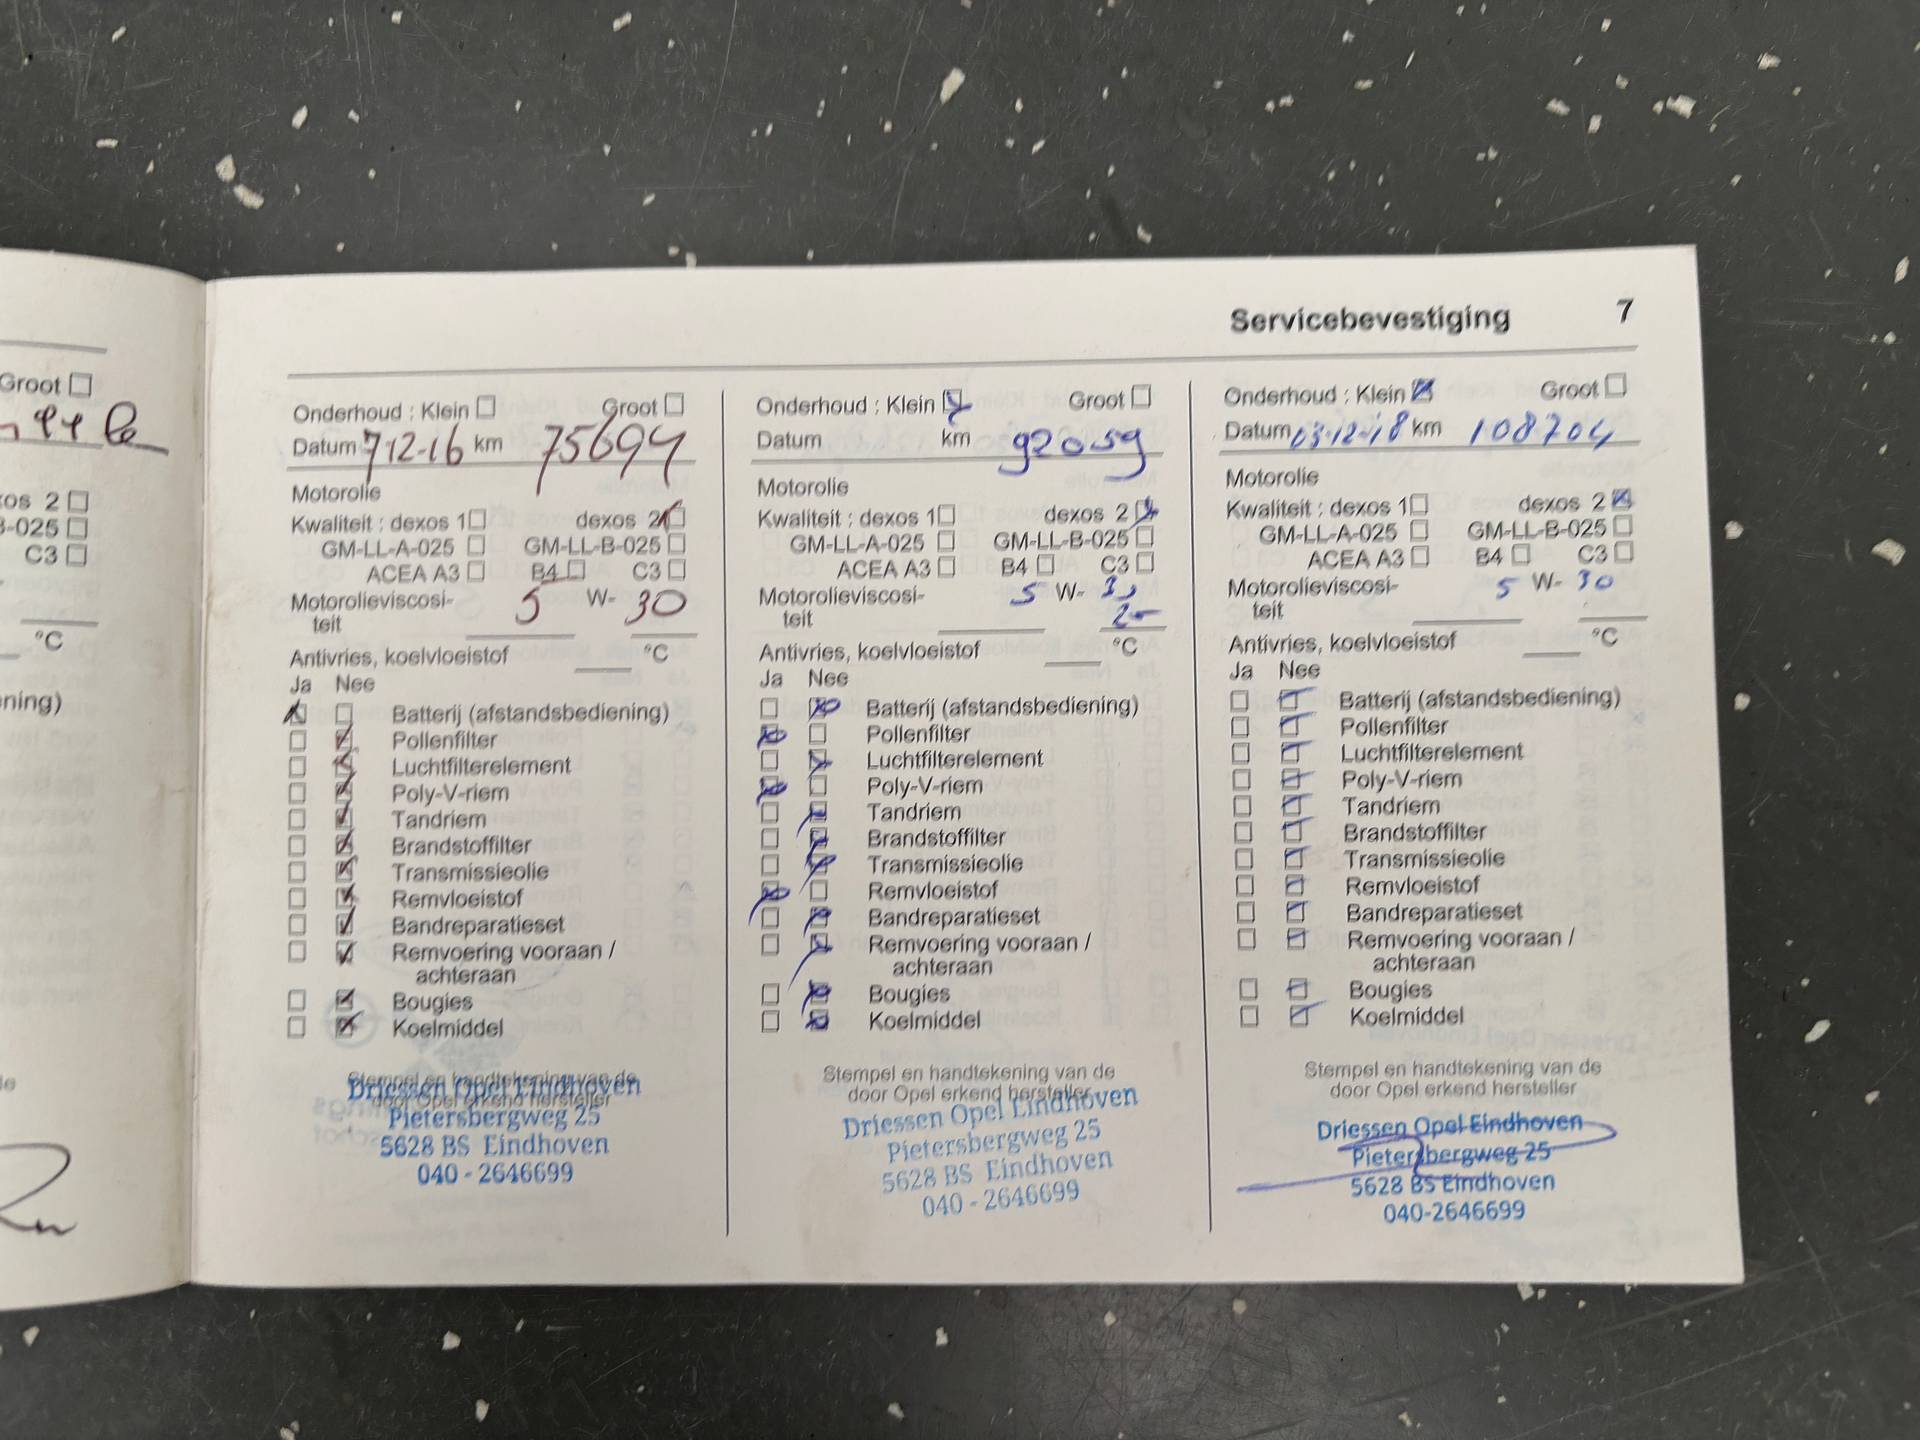 Groot
exos 2
B-025
C3
°C
ening)
Servicebevestiging 7
Onderhoud : Klein Groot
Datum 7-12-16 km 75694
Motorolie
Kwaliteit : dexos 1 dexos 2
GM-LL-A-025 GM-LL-B-025
ACEA A3 B4 C3
Motorolieviscosi- 5 W- 30
teit
Antivries, koelvloeistof °C
Ja Nee
Batterij (afstandsbediening)
Pollenfilter
Luchtfilterelement
Poly-V-riem
Tandriem
Brandstoffilter
Transmissieolie
Remvloeistof
Bandreparatieset
Remvoering vooraan /
achteraan
Bougies
Koelmiddel
Stempel en handtekening van de
door Opel erkend hersteller
Driessen Opel Eindhoven
Pietersbergweg 25
5628 BS Eindhoven
040 - 2646699
Onderhoud : Klein Groot
Datum km 92059
Motorolie
Kwaliteit : dexos 1 dexos 2
GM-LL-A-025 GM-LL-B-025
ACEA A3 B4 C3
Motorolieviscosi- 5 W- 30
teit
Antivries, koelvloeistof °C
Ja Nee
Batterij (afstandsbediening)
Pollenfilter
Luchtfilterelement
Poly-V-riem
Tandriem
Brandstoffilter
Transmissieolie
Remvloeistof
Bandreparatieset
Remvoering vooraan /
achteraan
Bougies
Koelmiddel
Stempel en handtekening van de
door Opel erkend hersteller
Driessen Opel Eindhoven
Pietersbergweg 25
5628 BS Eindhoven
040 - 2646699
Onderhoud : Klein Groot
Datum 03-12-18 km 108704
Motorolie
Kwaliteit : dexos 1 dexos 2
GM-LL-A-025 GM-LL-B-025
ACEA A3 B4 C3
Motorolieviscosi- 5 W- 30
teit
Antivries, koelvloeistof °C
Ja Nee
Batterij (afstandsbediening)
Pollenfilter
Luchtfilterelement
Poly-V-riem
Tandriem
Brandstoffilter
Transmissieolie
Remvloeistof
Bandreparatieset
Remvoering vooraan /
achteraan
Bougies
Koelmiddel
Stempel en handtekening van de
door Opel erkend hersteller
Driessen Opel Eindhoven
Pietersbergweg 25
5628 BS Eindhoven
040-2646699